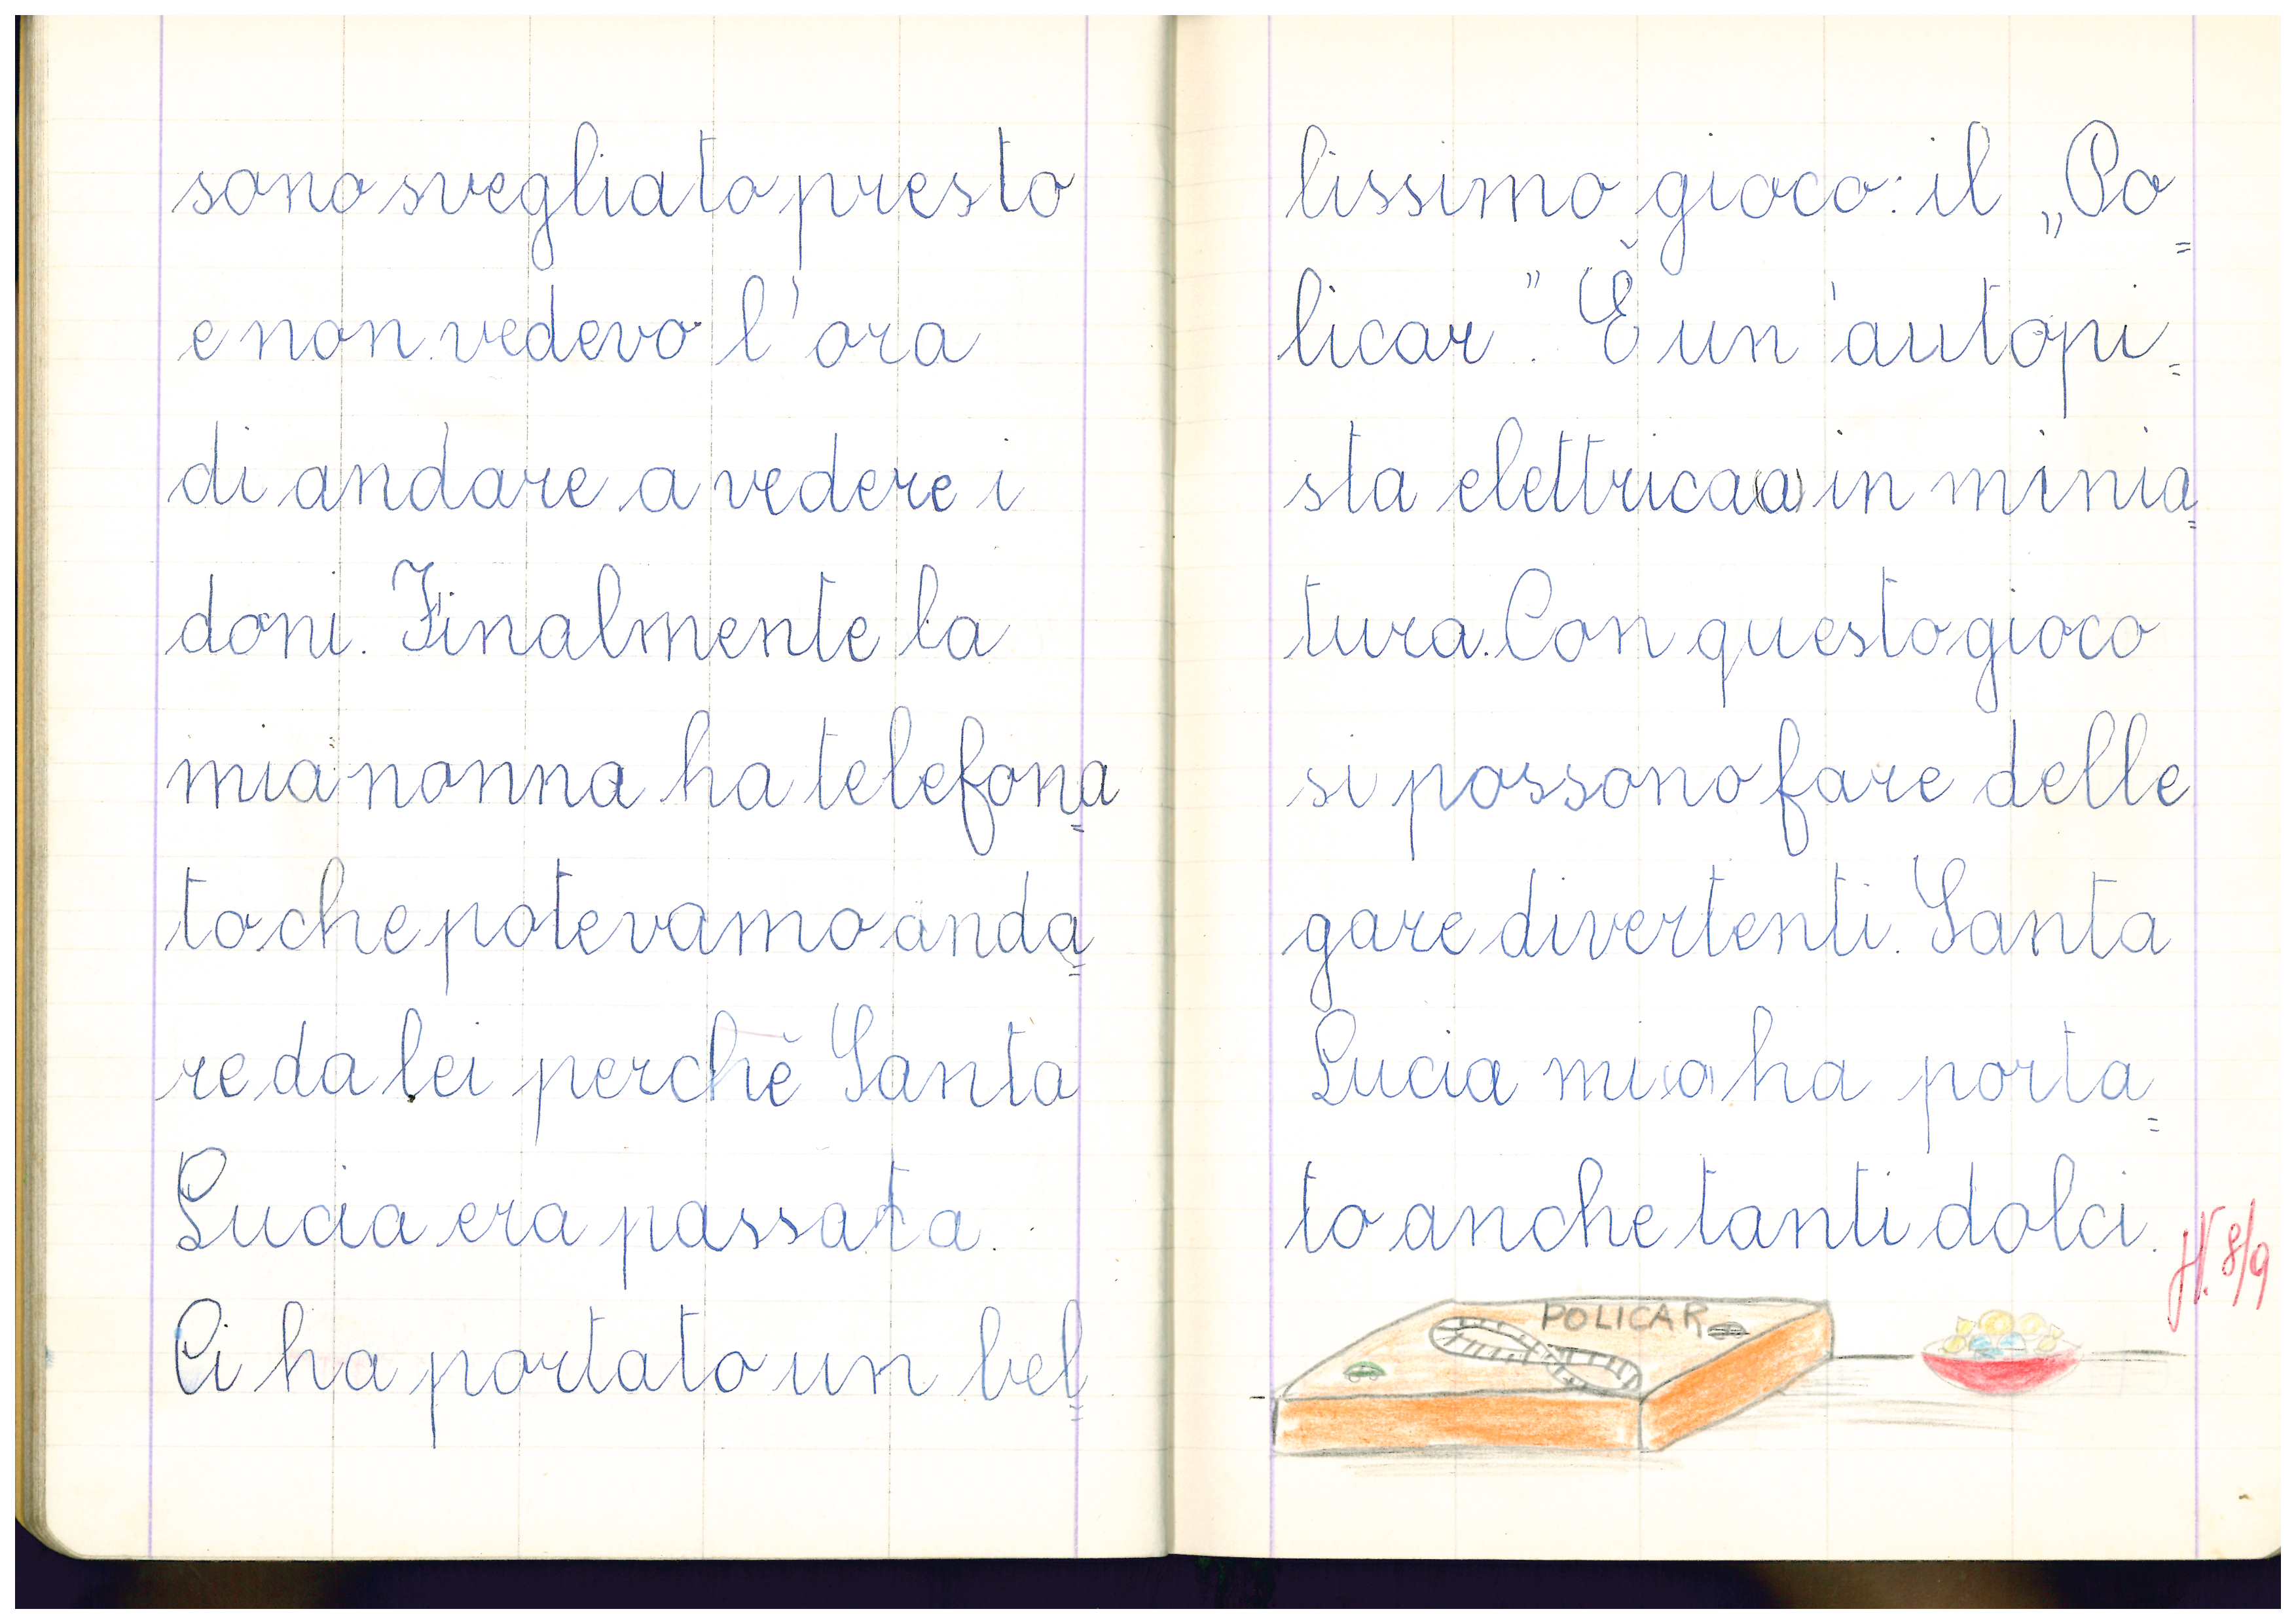 sono svegliato presto
e non vedevo l'ora
di andare a vedere i
doni. Finalmente la
mia nonna ha telefona=
to che potevamo anda=
re da lei perchè Santa
Lucia era passata.
Ci ha portato un bel=
lissimo gioco: il „Po=
licar". È un'autopi=
sta elettrica(a) in minia=
tura. Con questo gioco
si possono fare delle
gare divertenti. Santa
Lucia mi(a) ha porta=
to anche tanti dolci.
8/9
POLICAR